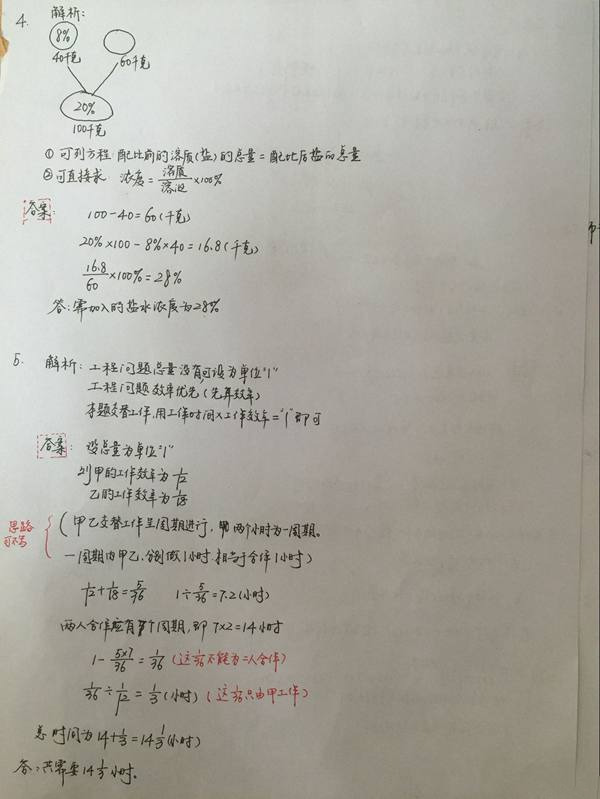 4. 解析:
8%
40千克
60千克
20%
100千克
① 可列方程:配比前的溶质(盐)的总量=配比后盐的总量
②可直接求 浓度=溶质/溶液×100%
答案:
100-40=60(千克)
20%×100-8%×40=16.8(千克)
16.8/60×100%=28%
答:需加入的盐水浓度为28%
5. 解析:工程问题总量没有,可设为单位"1"
工程问题效率优先(先算效率)
本题交替工作,用工作时间×工作效率="1"即可
答案: 设总量为单位"1"
则甲的工作效率为1/12
乙的工作效率为1/18
思路
可不写
(甲乙交替工作呈周期进行,即两个小时为一周期。
一周期内甲乙分别做1小时.相当于合作1小时)
1/12+1/18=5/36 1÷5/36=7.2(小时)
两人合作应有7个周期,即7×2=14小时
1-5×7/36=1/36(这1/36不能为二人合作)
1/36÷1/12=1/3(小时)(这1/36只由甲工作)
总时间为14+1/3=14 1/3(小时)
答:共需要14 1/3小时.